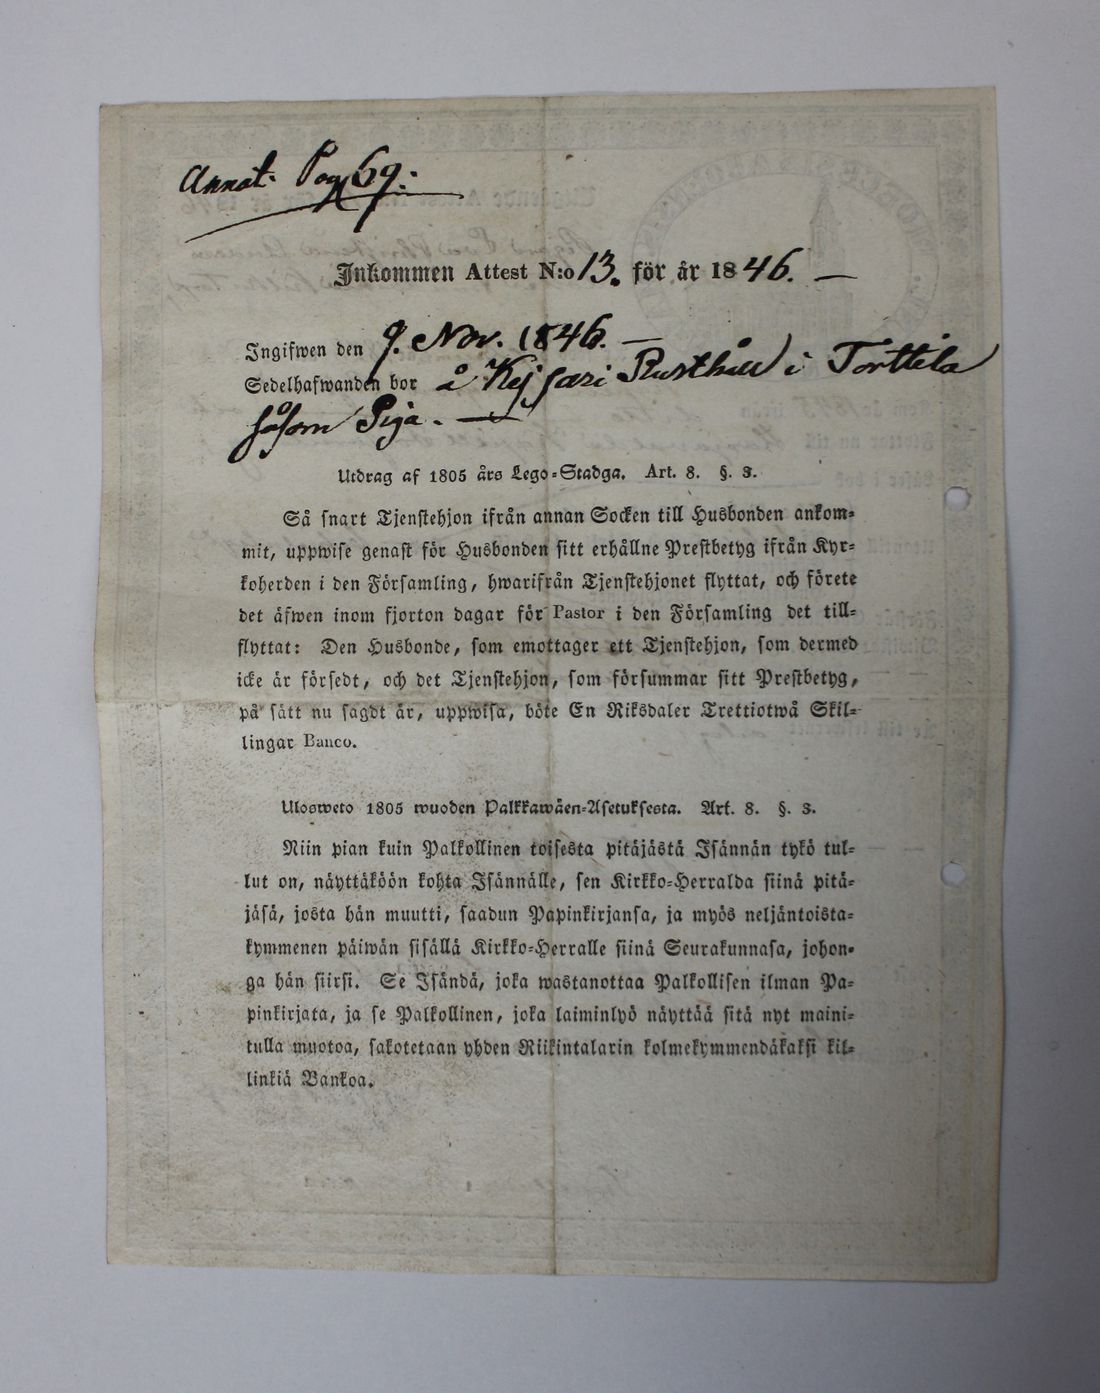 Annot. Pag 69:
Inkommen Attest N:o 13. för år 1846. —
Ingifwen den 9. Nov. 1846. —
Sedelhafwanden bor å Kejsari Rusthåll i Torttila
såsom Piga. —
Utdrag af 1805 års Lego-Stadga. Art. 8. §. 3.
Så snart Tjenstehjon ifrån annan Socken till Husbonden ankom-
mit, uppwise genast för Husbonden sitt erhållne Prestbetyg ifrån Kyr-
koherden i den Församling, hwarifrån Tjenstehjonet flyttat, och förete
det äfwen inom fjorton dagar för Pastor i den Församling det till-
flyttat: Den Husbonde, som emottager ett Tjenstehjon, som dermed
icke är försedt, och det Tjenstehjon, som försummar sitt Prestbetyg,
på sätt nu sagdt är, uppwisa, böte En Riksdaler Trettiotwå Skil-
lingar Banco.
Ulosweto 1805 wuoden Palkkawäen-Asetuksesta. Art. 8. §. 3.
Niin pian kuin Palkollinen toisesta pitäjästä Isännän tykö tul-
lut on, näyttäköön kohta Isännälle, sen Kirkko-Herralda siinä pitä-
jäsä, josta hän muutti, saadun Papinkirjansa, ja myös neljäntoista-
kymmenen päiwän sisällä Kirkko-Herralle siinä Seurakunnasa, johon-
ga hän siirsi. Se Isändä, joka wastanottaa Palkollisen ilman Pa-
pinkirjata, ja se Palkollinen, joka laiminlyö näyttää sitä nyt maini-
tulla muotoa, sakotetaan yhden Riikintalarin kolmekymmendäkaksi kil-
linkiä Bankoa.